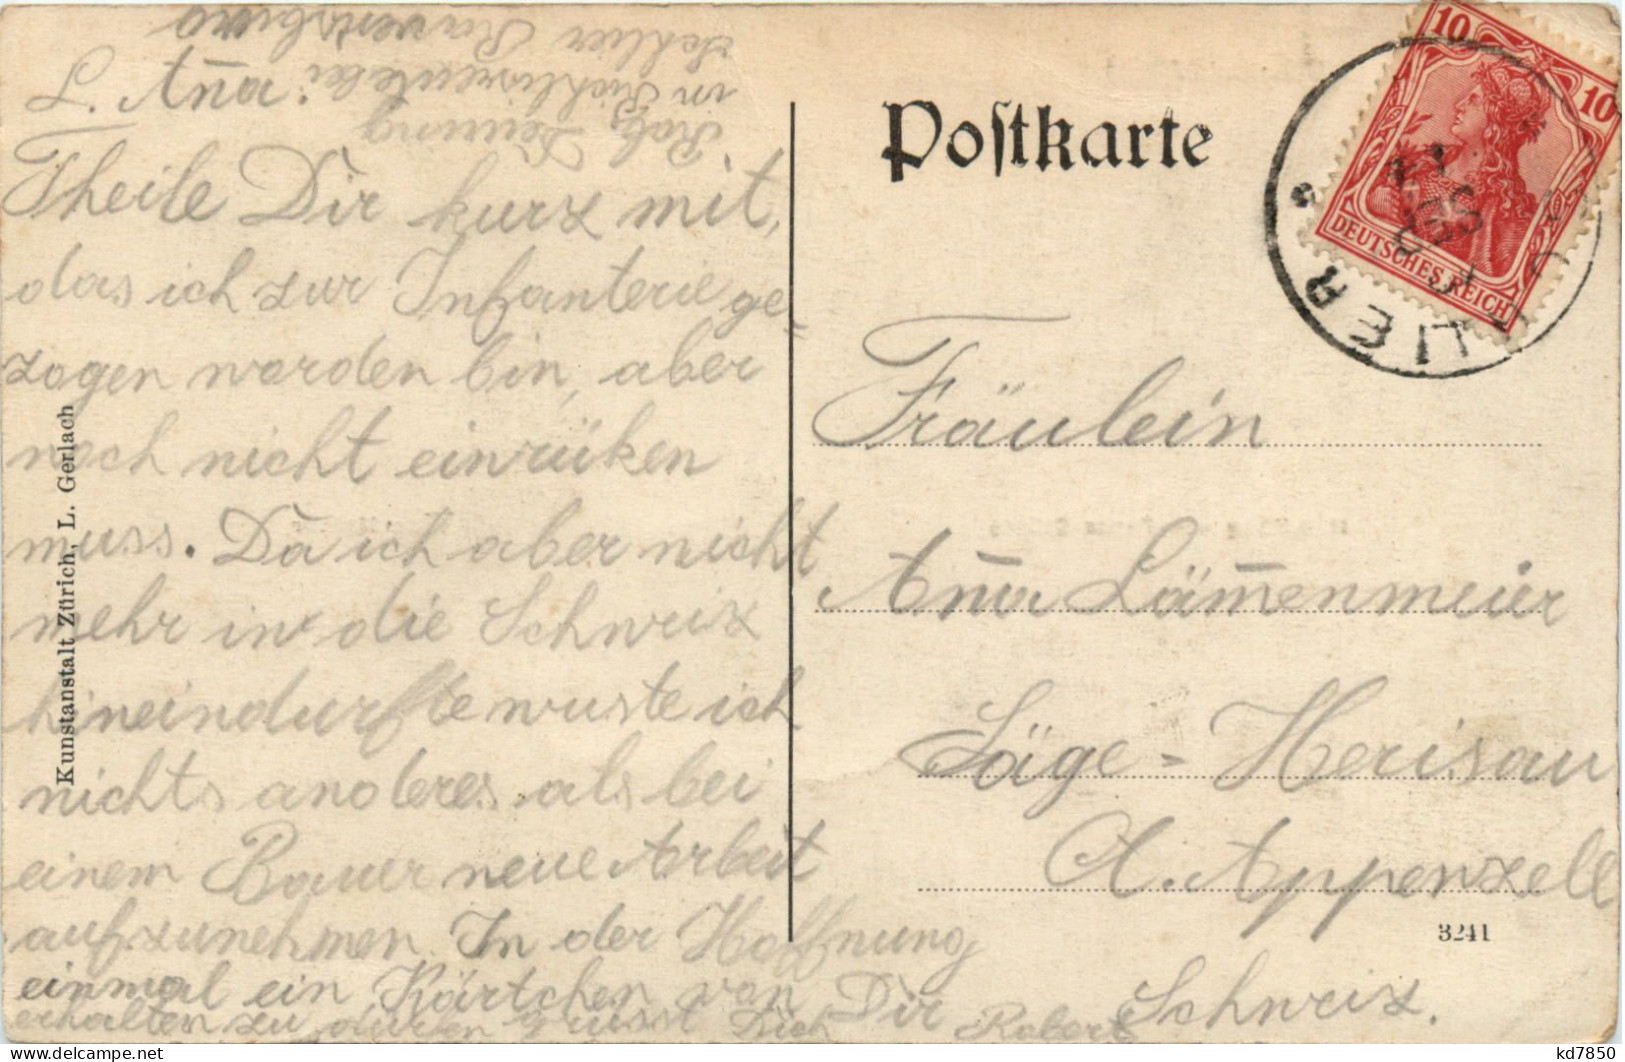 L. Ana.
Theile Dir kurz mit,
das ich zur Infanterie ge-
zogen worden bin, aber
noch nicht einrüken
muss. Da ich aber nicht
mehr in die Schweiz
hineindurfte wuste ich
nichts anderes als bei
einem Bauer neue Arbeit
aufzunehmen. In der Hoffnung
einmal ein Kärtchen von Dir
erhalten zu dürfen grüsst Dich Robert
Rob.
in
Schlier Ravensburg
Kunstanstalt Zürich, L. Gerlach
Postkarte
10 10
DEUTSCHES REICH
SCHLIER
SEP
Fräulein
Ana Lämenmeier
Säge-Herisau
A. Appenzell
3241
Schweiz.
kd7850